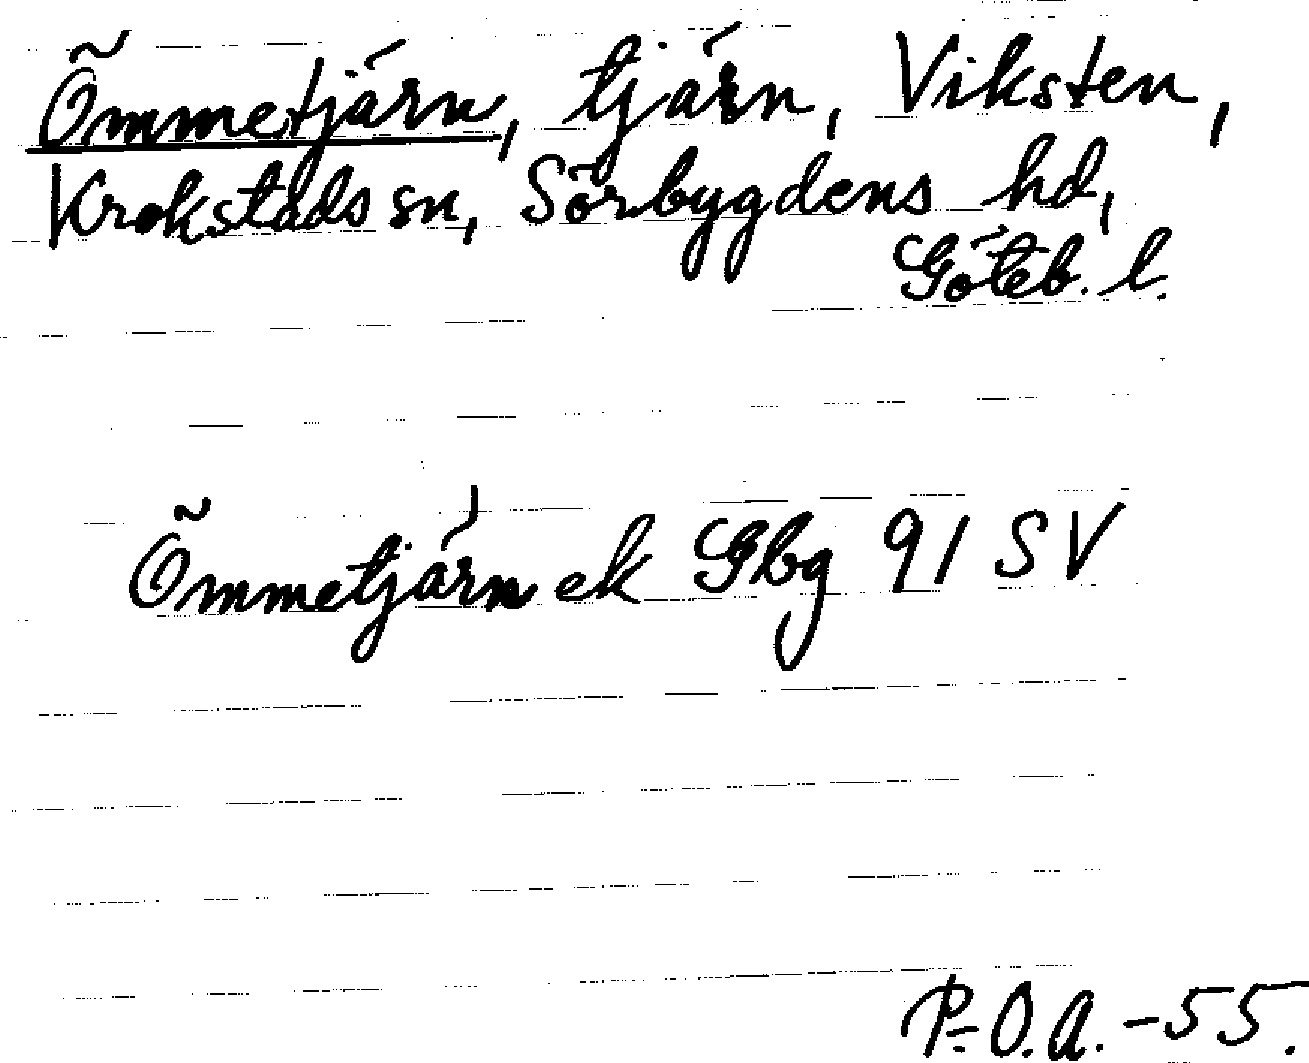 Ömmetjärn, tjärn, Viksten,
Krokstads sn, Sörbygdens hd,
Göteb. l.
Ömmetjärn ek Gbg 91 SV
P-O.A. -55.